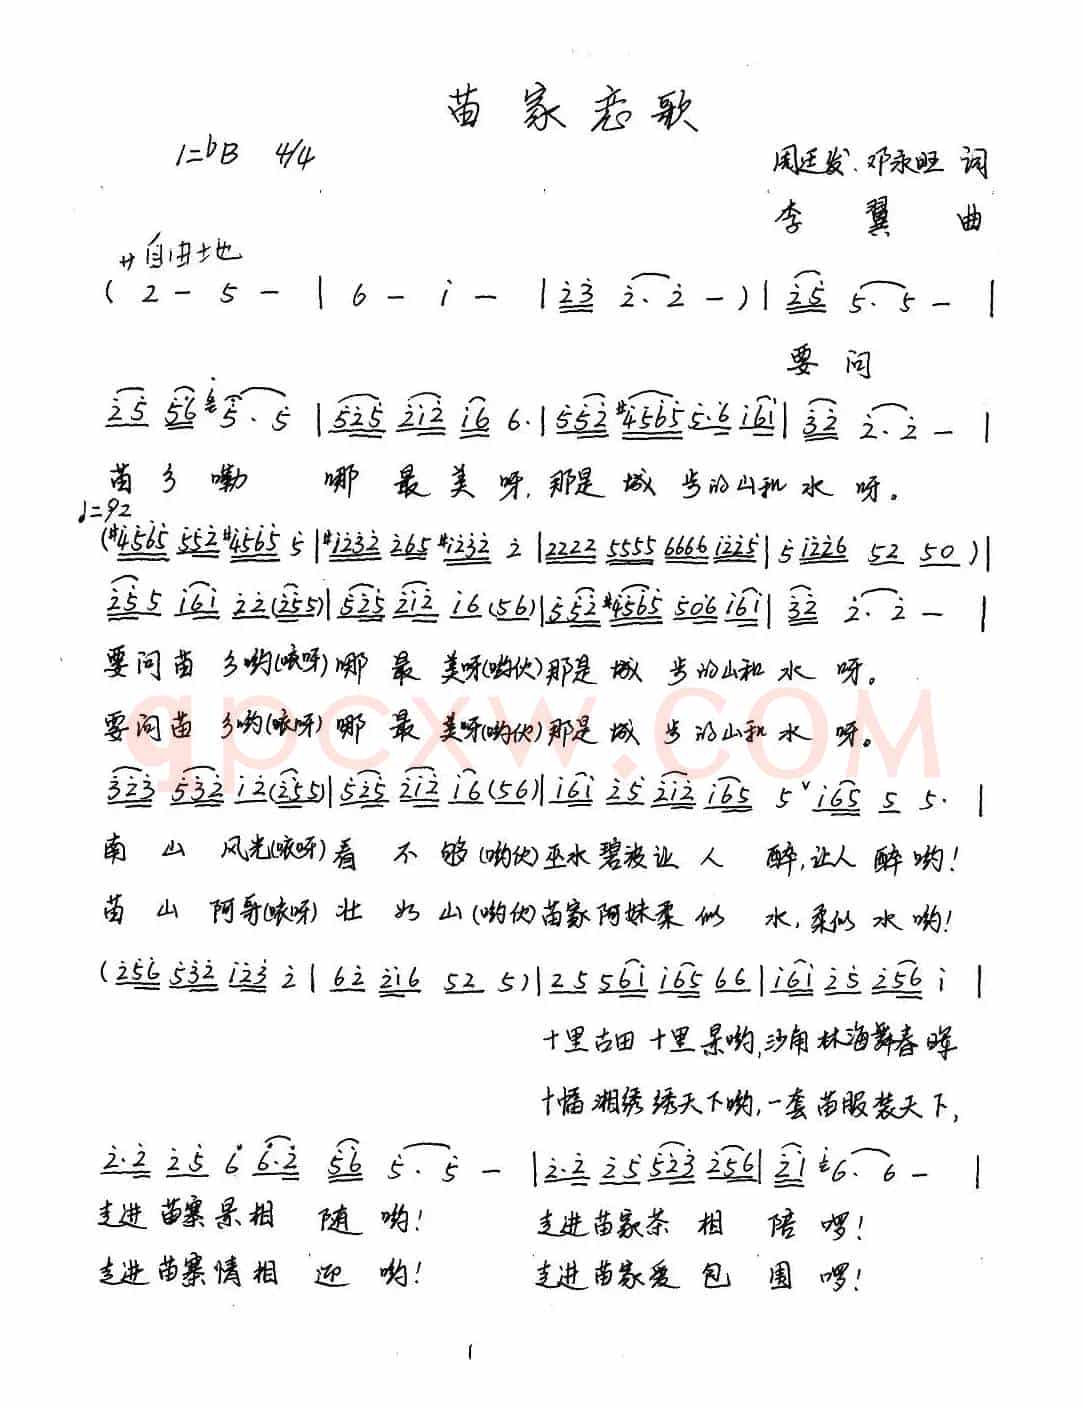 苗家恋歌
1=♭B 4/4
周廷发、邓永旺 词
李翼 曲
サ自由地
( 2 - 5 - | 6 - i - | 23 2. 2 - ) | 25 5. 5 - |
要问
25 56 5. 5 | 525 212 i6 6. | 552 #4565 5.6 i6i | 32 2. 2 - |
苗乡嘞 哪最美呀,那是城步的山和水呀。
♩=92
(#4565 552 #4565 5 | #1232 265 #1232 2 | 2222 5555 6666 1225 | 5 1226 52 50 ) |
255 i6i 22(255) | 525 212 i6(56) | 552 #4565 506 i6i | 32 2. 2 - |
要问苗乡哟(咳呀)哪最美呀(哟伙)那是城步的山和水呀。
要问苗乡哟(咳呀)哪最美呀(哟伙)那是城步的山和水呀。
qpcxw.COM
323 532 i2(255) | 525 212 i6(56) | i6i 25 212 i65 5 ˅ i65 5 5. |
南山风光(咳呀)看不够(哟伙)巫水碧波让人醉,让人醉哟!
苗山阿哥(咳呀)壮如山(哟伙)苗家阿妹柔似水,柔似水哟!
(256 532 123 2 | 62 216 52 5) | 25 56i i65 66 | i6i 25 256 i |
十里古田十里景哟,沙角林海舞春晖
十幅湘绣绣天下哟,一套苗服装天下,
2.2 25 6 6.2 56 5. 5 - | 2.2 25 523 256 | 21 6. 6 - |
走进苗寨景相随哟! 走进苗家茶相陪啰!
走进苗寨情相迎哟! 走进苗家爱包围啰!
1